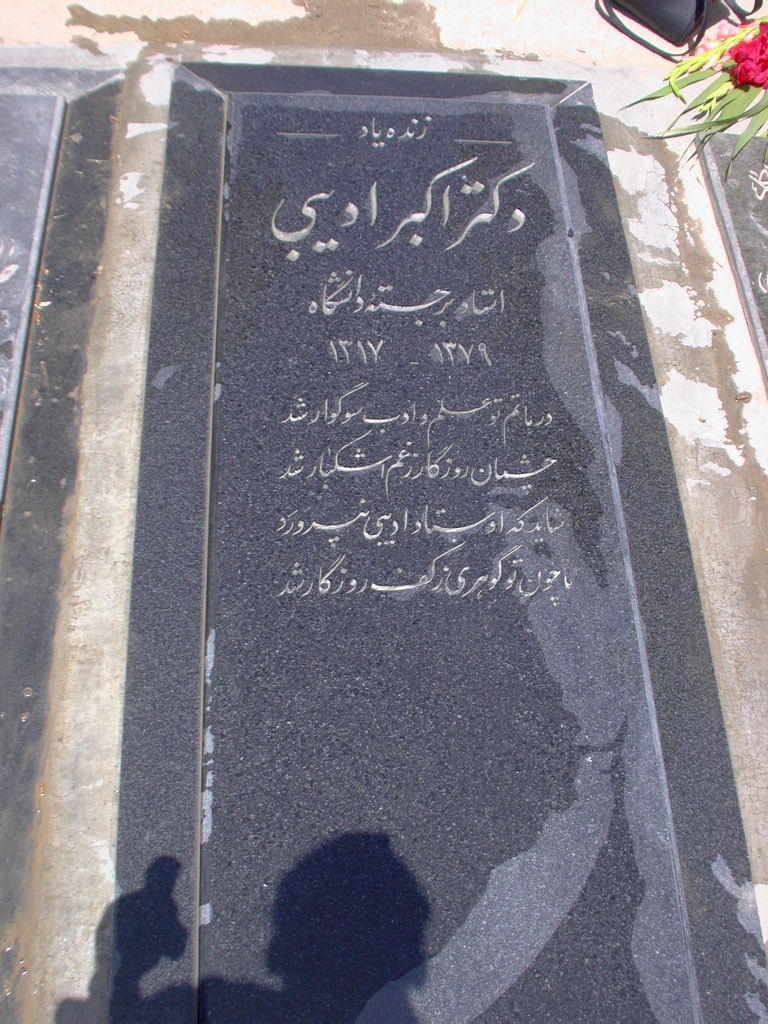 زنده یاد
دکتر اکبر ادیبی
استاد برجسته دانشگاه
۱۳۱۷ - ۱۳۷۹
در ماتم تو علم و ادب سوگوار شد
چشمان روزگار ز غم اشکبار شد
شاید که اوستاد ادیبی نپرورد
تا چون تو گوهری ز کف روزگار شد